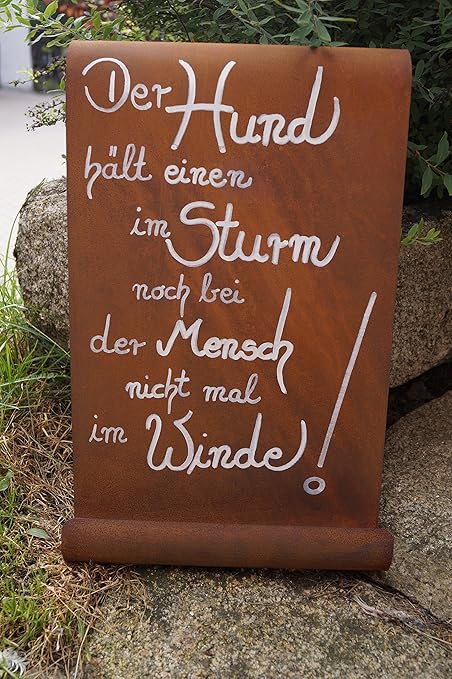 Der Hund
hält einen
im Sturm
noch bei
der Mensch
nicht mal
im Winde!